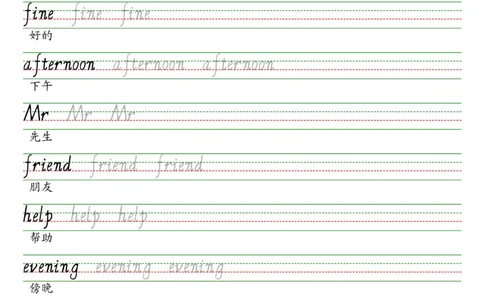 fine fine fine
好的
afternoon afternoon afternoon
下午
Mr Mr Mr
先生
friend friend friend
朋友
help help help
帮助
evening evening evening
傍晚